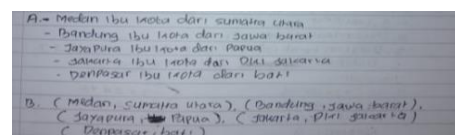 A. - Medan ibu kota dari sumatra utara
- Bandung ibu kota dari Jawa barat
- Jayapura ibu kota dari Papua
- Jakarta ibu kota dari DKI Jakarta
- Denpasar ibu kota dari bali
B. (Medan, sumatra utara), (Bandung, Jawa barat),
(Jayapura, Papua), (Jakarta, DKI Jakarta)
(Denpasar, bali)